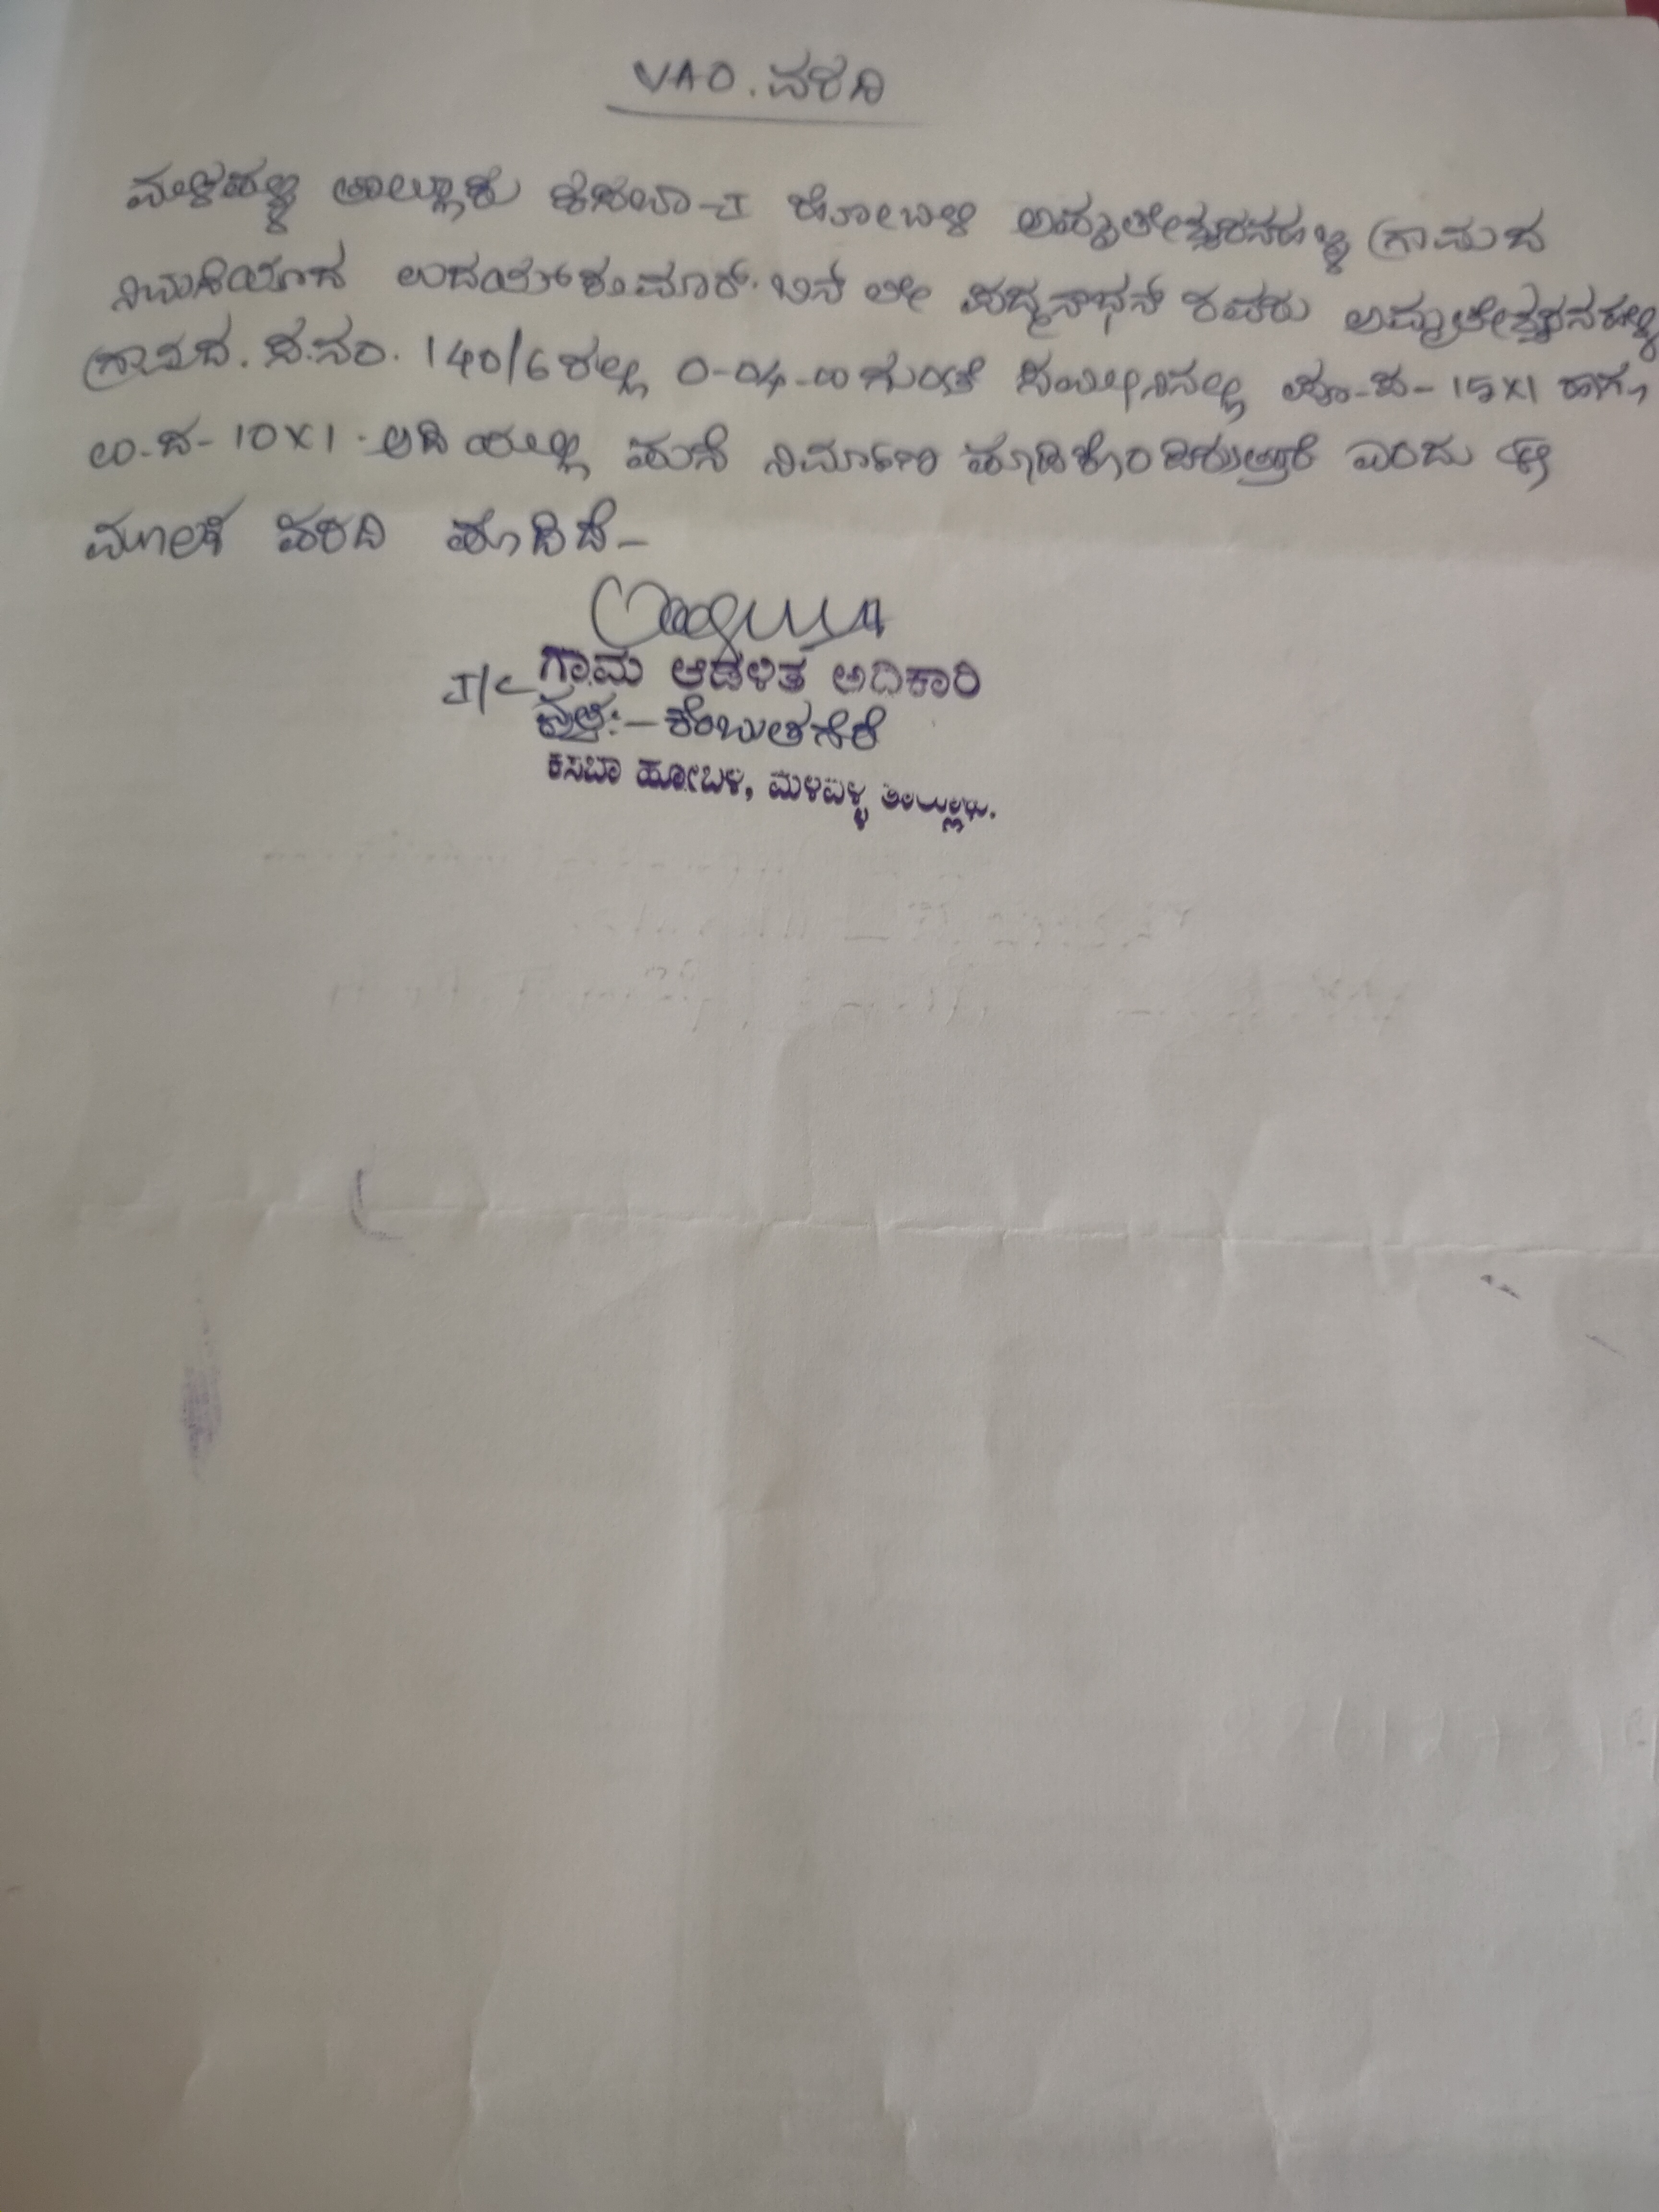 VAO. ವರದಿ
ಮಳವಳ್ಳಿ ತಾಲ್ಲೂಕು ಕಸಬಾ-I ಹೋಬಳಿ ಅಮೃತೇಶ್ವರನಹಳ್ಳಿ ಗ್ರಾಮದ
ನಿವಾಸಿಯಾದ ಉದಯ್‌ಕುಮಾರ್. ಬಿನ್ ಲೇ ಪದ್ಮನಾಭನ್ ರವರು ಅಮೃತೇಶ್ವರನಹಳ್ಳಿ
ಗ್ರಾಮದ. ಸ.ನಂ. 140/6 ರಲ್ಲಿ 0-04-00 ಗುಂಟೆ ಜಮೀನಿನಲ್ಲಿ ಪೂ-ಪ- 15X1 ಹಾಗೂ
ಉ-ದ- 10X1. ಅಡಿಯಲ್ಲಿ ಮನೆ ನಿರ್ಮಾಣ ಮಾಡಿಕೊಂಡಿರುತ್ತಾರೆ ಎಂದು ಈ
ಮೂಲಕ ವರದಿ ಮಾಡಿದೆ-
I/C ಗ್ರಾಮ ಆಡಳಿತ ಅಧಿಕಾರಿ
ವೃತ್ತ:- ಕೆಂಬುತಗೆರೆ
ಕಸಬಾ ಹೋಬಳಿ, ಮಳವಳ್ಳಿ ತಾಲ್ಲೂಕು.